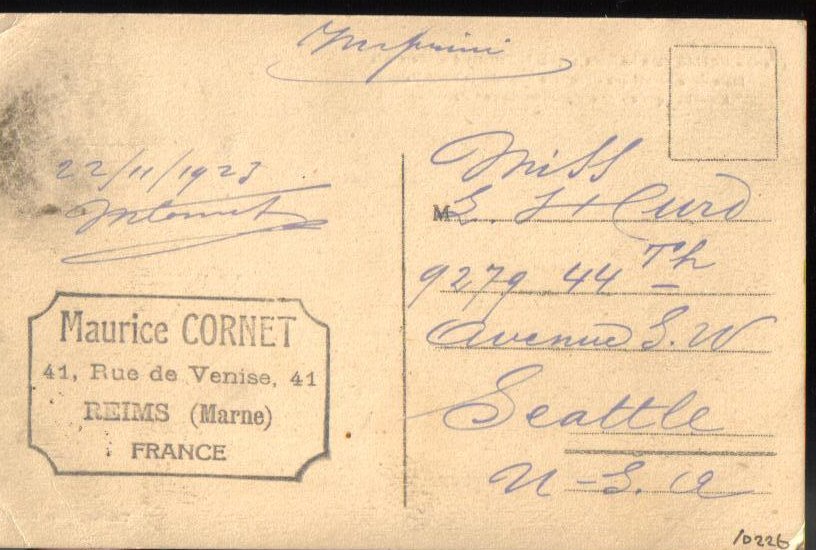 Imprimé
22/11/1923
MCornet
Maurice CORNET
41, Rue de Venise, 41
REIMS (Marne)
FRANCE
Miss
M
9279 44 Th
Avenue S. W
Seattle
U-S. A
10226